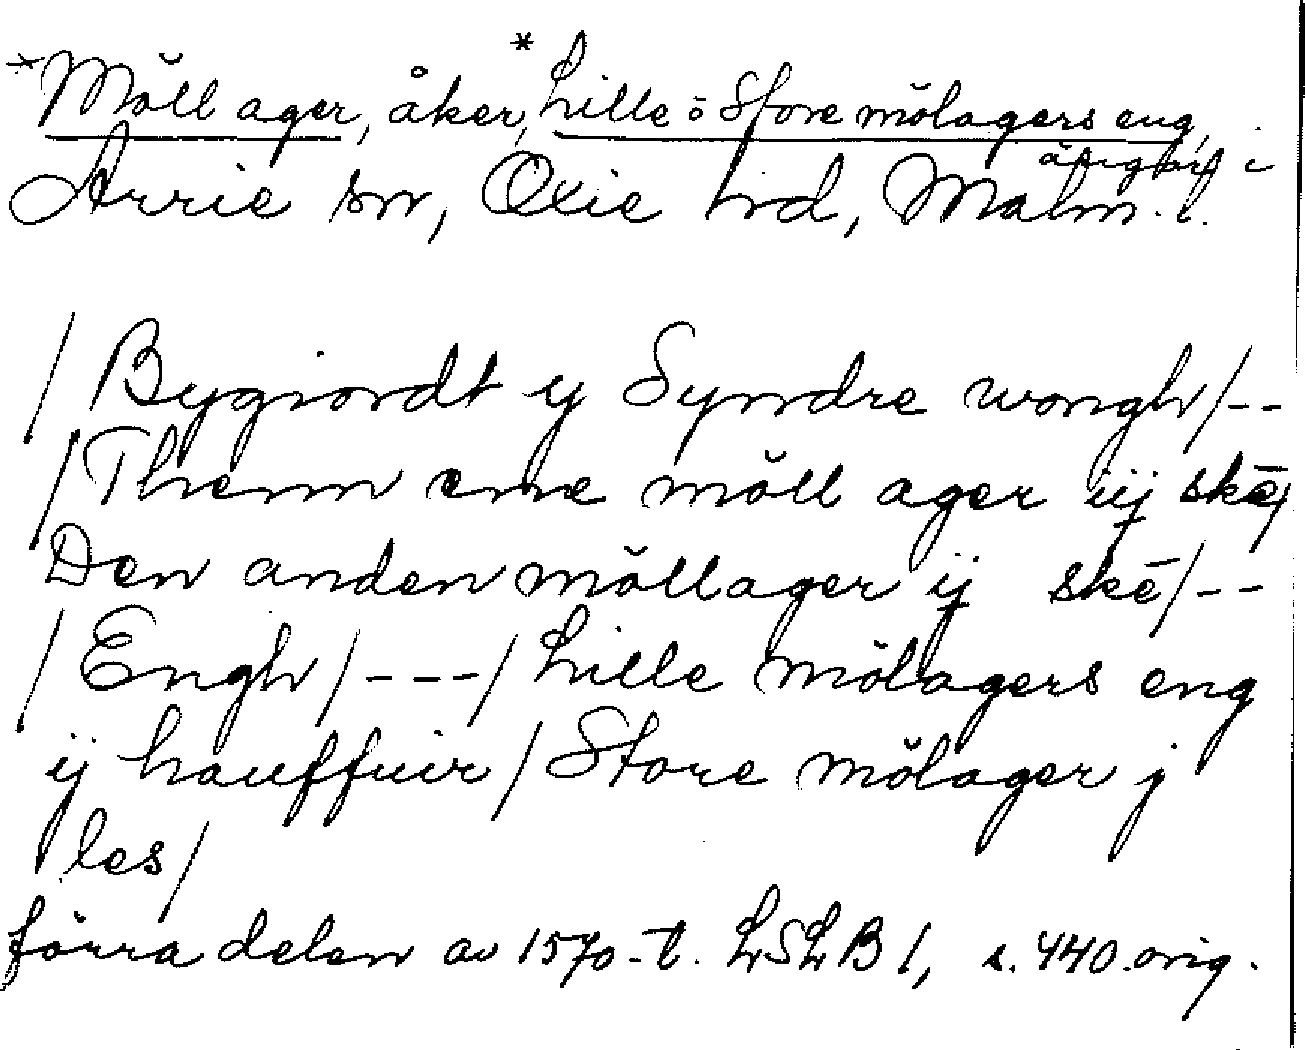 *Mŏll ager, åker, *Lille o Store mŏlagers eng,
ängbit i
Arrie sn, Oxie hd, Malm. l.
/Bygiordt y Syndre wongh/--
/Thenn ene mŏll ager iij skē/
Den anden mŏllager ij skē/--
/Engh/---/Lille mŏlagers eng
ij hauffuir/Store mŏlager j
les/
förra delen av 1570-t. LSLB 1, s. 440. orig.